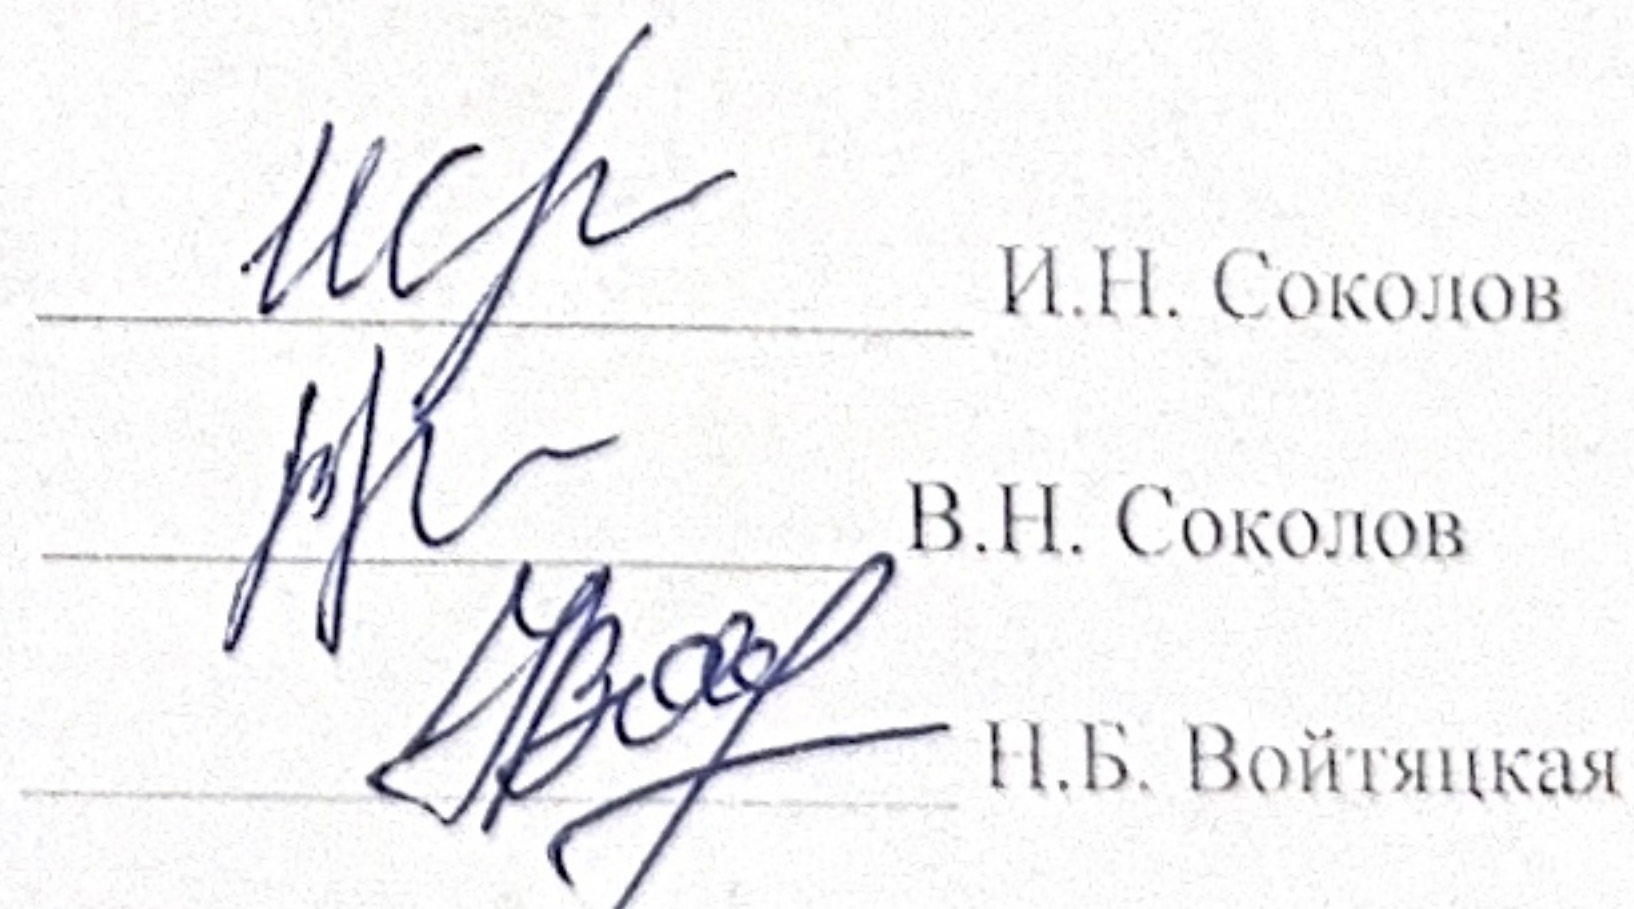 И.Н. Соколов
В.Н. Соколов
Н.Б. Войтяцкая